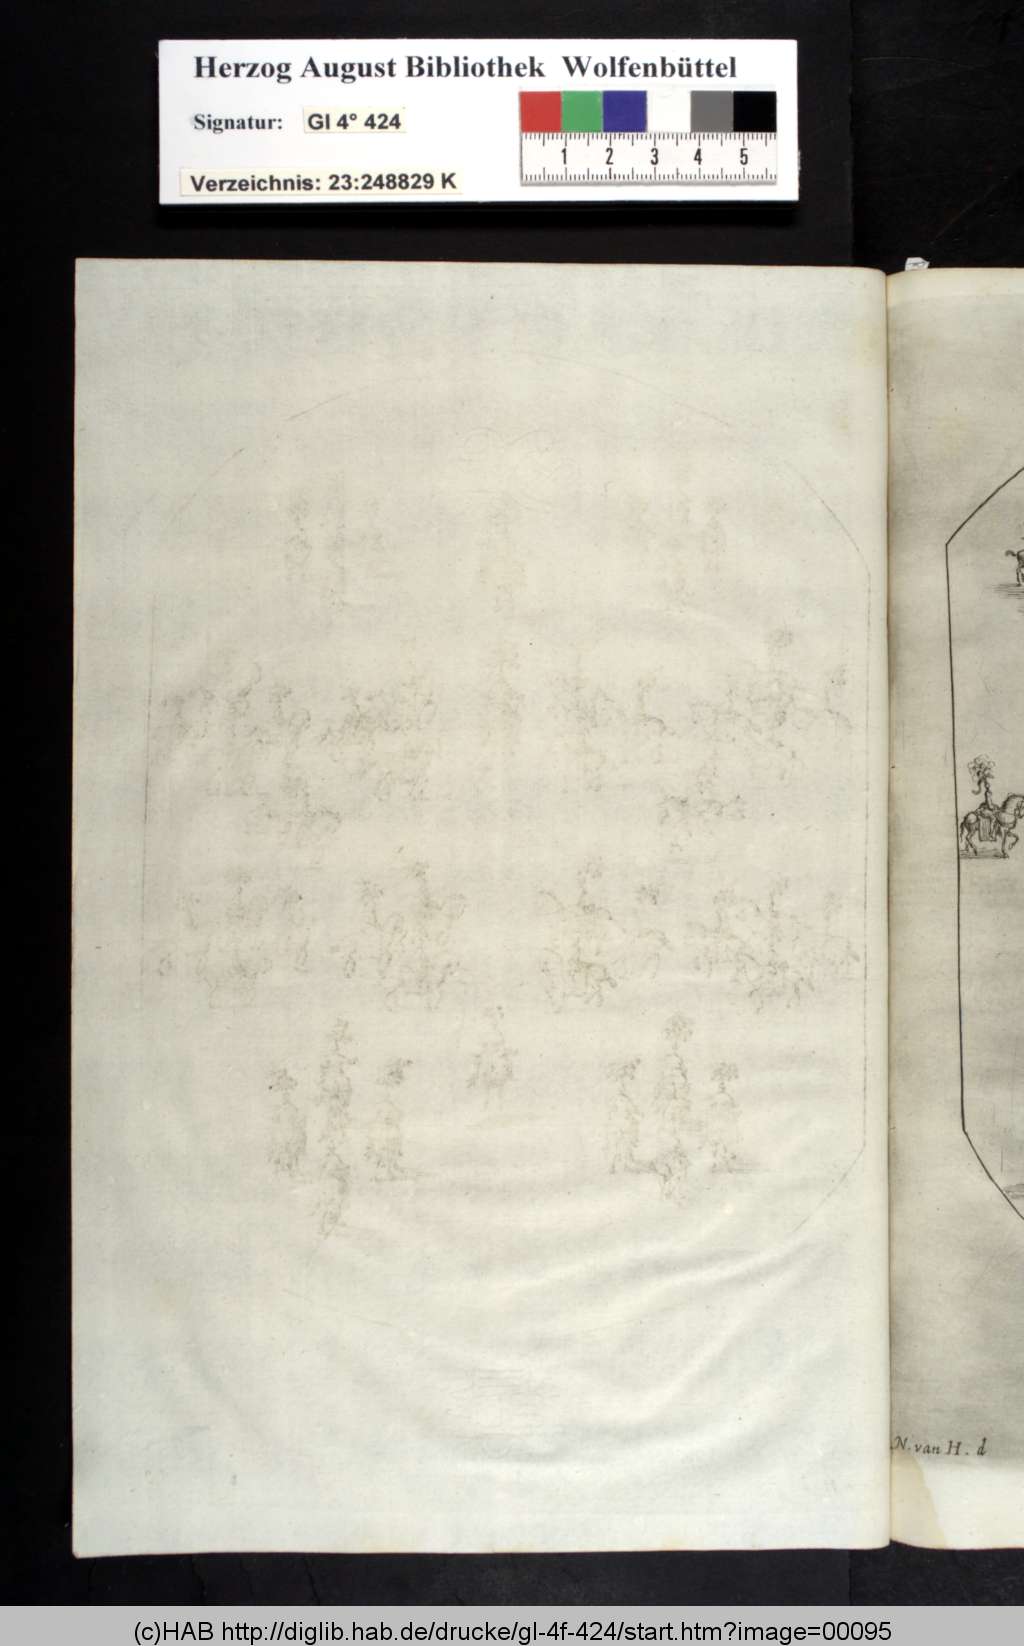 Herzog August Bibliothek Wolfenbüttel
Signatur: Gl 4° 424
Verzeichnis: 23:248829 K
1 2 3 4 5
N. van H. d
(c)HAB http://diglib.hab.de/drucke/gl-4f-424/start.htm?image=00095